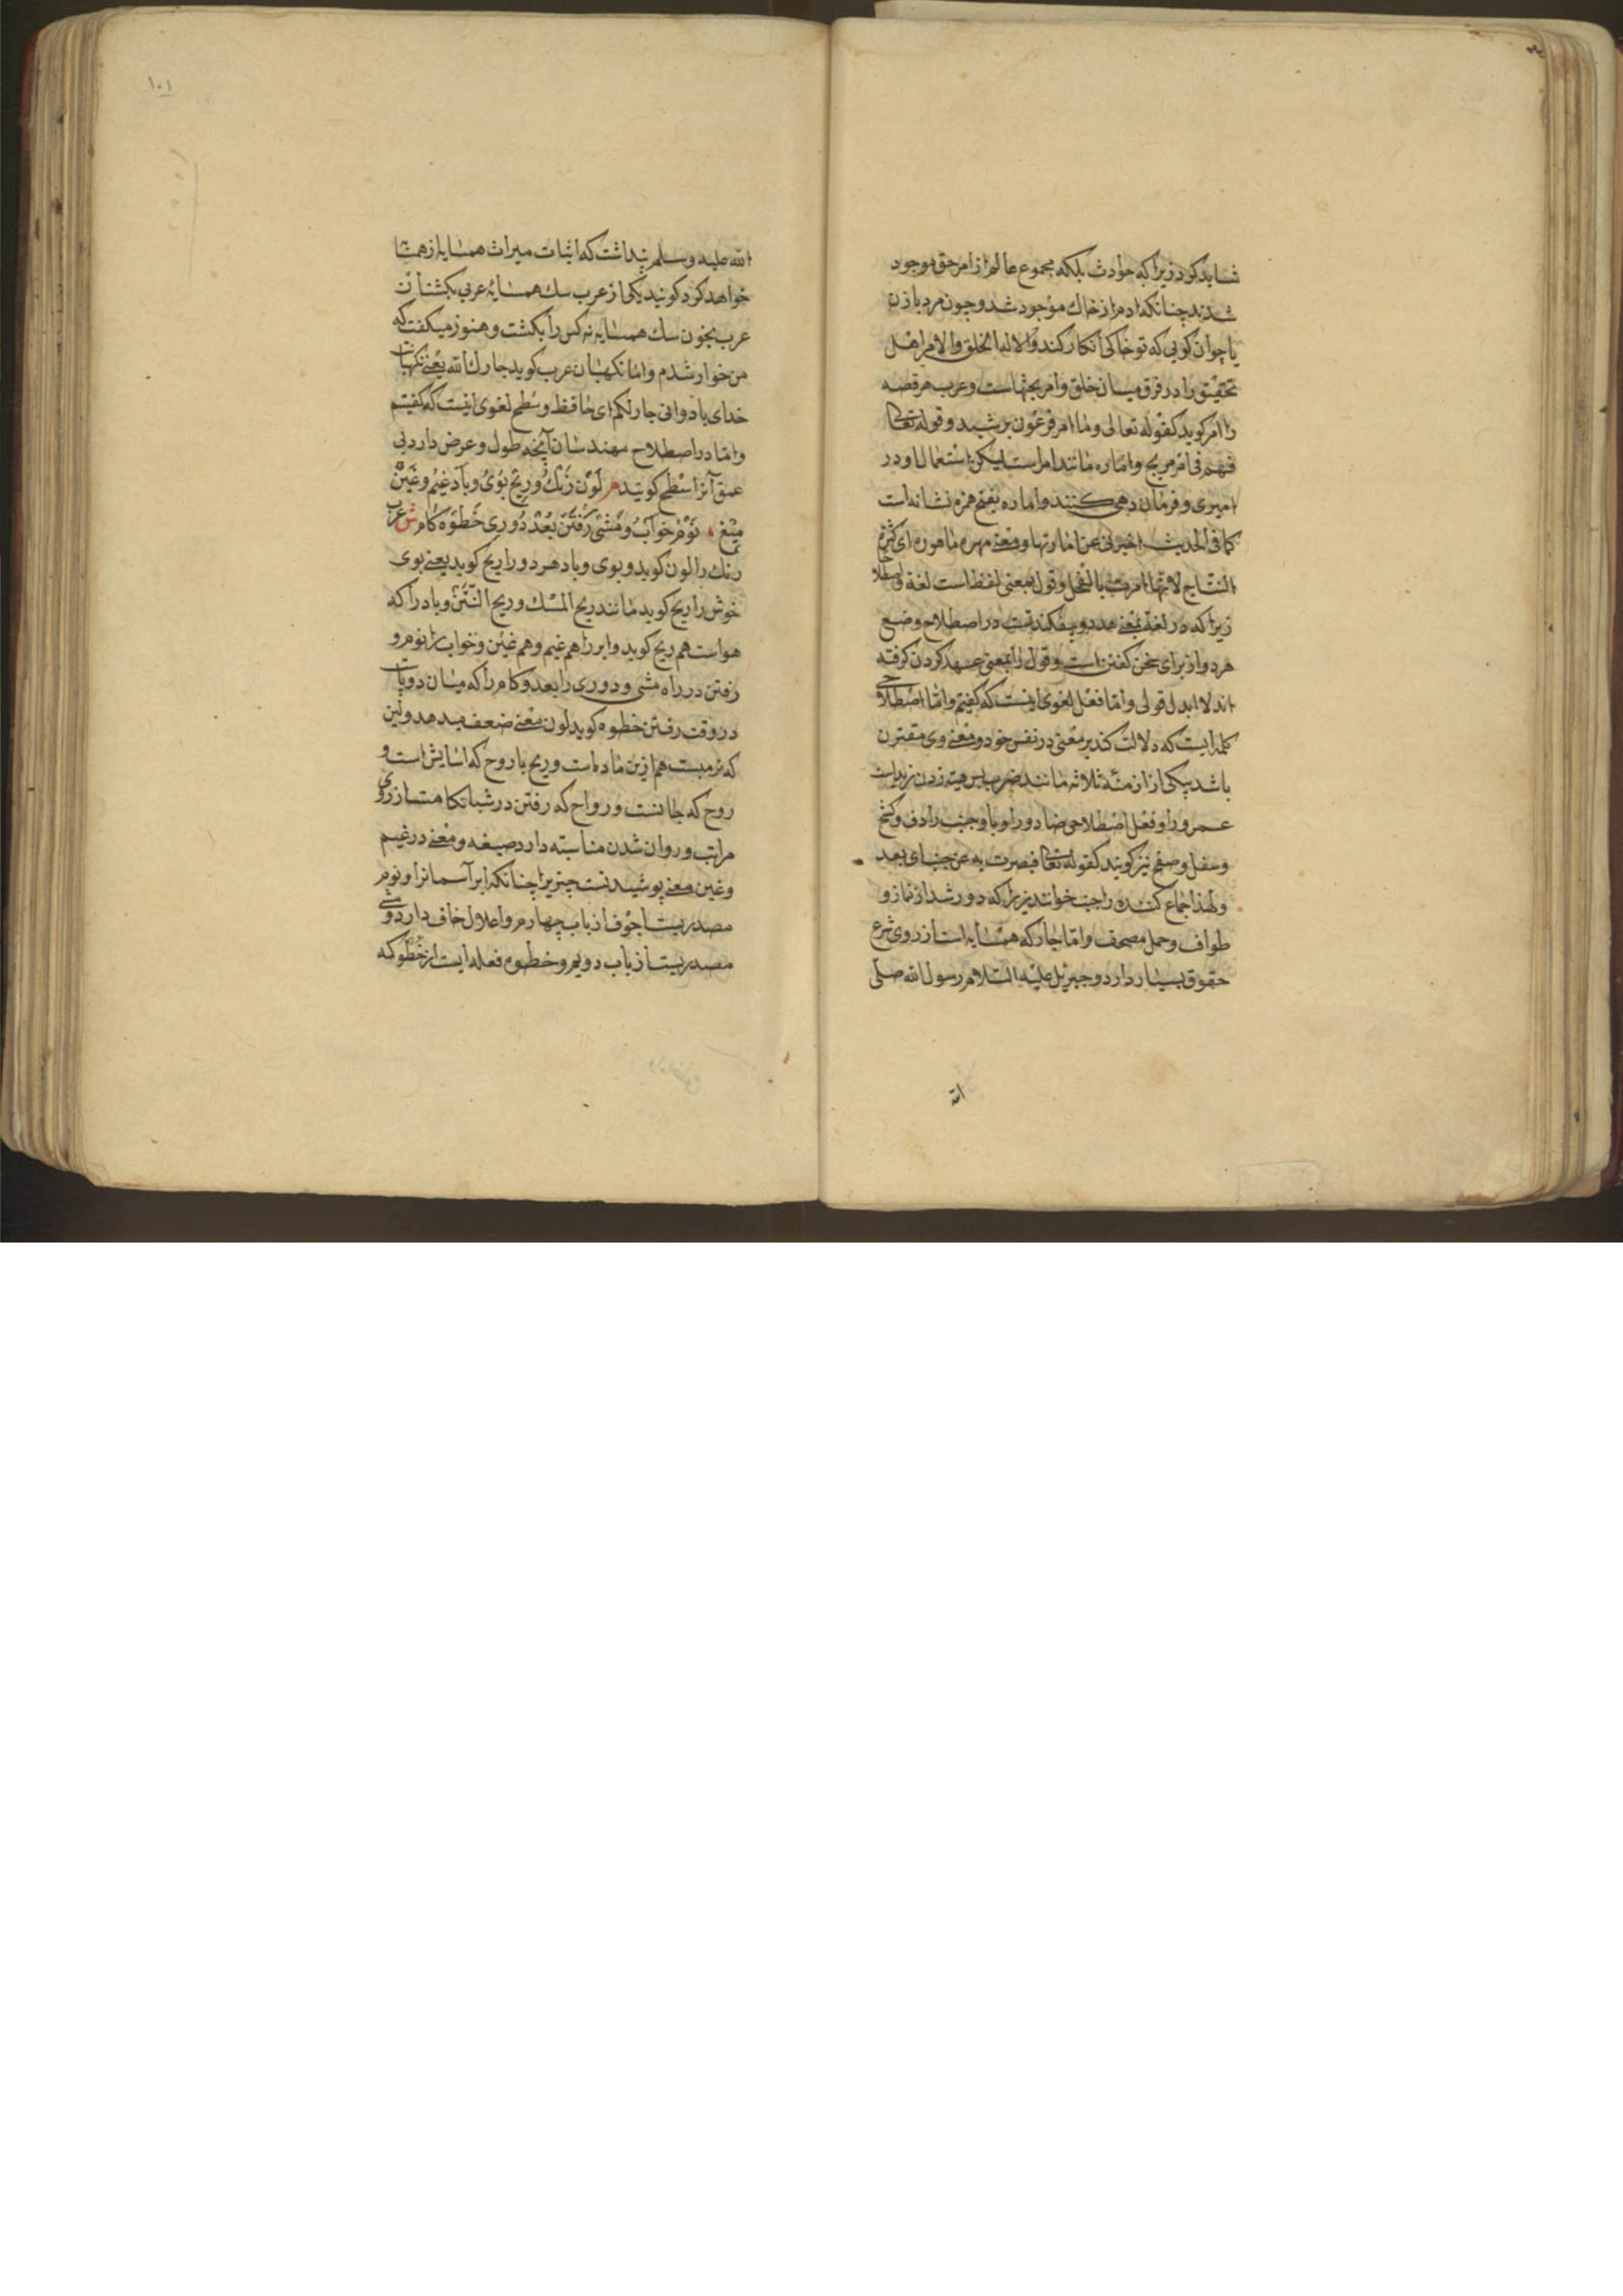 شاید کرد زیرا که حوادث بلکه مجموع عالم از امر حق موجود
شدند چنانکه ادم از خاك موجود شد و چون مرد با زن
یا جوان کویی که تو خاکی انکار کند والا له الخلق والامر اهل
تحقیق را در فرق میان خلق و امر بحثهاست و عرب هر قصه
را امر کوید کقوله تعالی وما امر فرعون برشید و قوله تعالی
فهم فی امر مریج و اماره مانند امر است لیکن استعمال او در
امیری و فرمان دهی کنند و اماره بفتح همزه نشانه است
کما فی الحدیث اخبرنی عن اماراتها و معنی مهره ماموره ای کثیرة
النتاج لانها امرت بالفحل و قول بمعنی لفظ است لغة واصطلاحا
زیرا که در لغة بمعنی هر دو بیفکندنست در اصطلاح وضع
هر دو از برای سخن کفتن است و قول را بمعنی عهد کردن کرفته
اند لا ابدل قولی و اما فعل لغوی اینست که کفتیم و اما اصطلاحی
کلمه ایست که دلالت کند بر معنی در نفس خود و معنی وی مقترن
باشد بیکی از ازمنهٔ ثلاثه مانند ضرب پس هیته زدن زیداست
عمرو را و فعل اصطلاحی ضاد و را و با و جنب را دف و کشح
و سفل و صفح نیز کویند کقوله تعالی فبصرت به عن جنب ای بعد
ولهذا جماع کننده را جنب خوانند زیرا که دور شد از نماز و
طواف و حمل مصحف و اما جار که همسایه است از روی شرع
حقوق بسیار دارد و جبریل علیه السلام رسول الله صلی
الله
۱۰۱
الله علیه وسلم پنداشت که اثبات میراث همسایه از همسا
خواهد کرد کویند یکی از عرب سك همسایهٔ عربی بکشت آن
عرب بخون سك همسایه نه کس را بکشت و هنوز میکفت که
من خوار شدم و اما نکهبان عرب کوید جارك الله یعنی نکهبانت
خدای باد وانی جار لکم ای حافظ و سطح لغوی اینست که کفتیم
و اما در اصطلاح مهندسان آنچه طول و عرض دارد بی
عمق آنرا سطح کویند م لون رنك و ریح بوی و باد غیم و غین
میغ نوم خواب و مشی رفتن بعد دوری خطوه کام ش عرب
رنك را لون کوید و بوی و باد هر دو را ریح کوید یعنی بوی
خوش را ریح کوید مانند ریح المسك و ریح النتن و باد را که
هواست هم ریح کوید و ابر را هم غیم و هم غین و خواب را نوم و
رفتن در راه مشی و دوری را بعد و کام را که میان دو پاست
در وقت رفتن خطوه کوید لون معنی ضعف میدهد ولین
که نرمیست هم ازین ماده است و ریح با روح که اسایش است و
روح که جانست و رواح که رفتن در شبانکاهست از روی
مراتب و روان شدن مناسبته دارد صیغه و معنی در غیم
و غین معنی پوشیدنست چیزیرا چنانکه ابر آسمانرا و نوم
مصدریست اجوف از باب چهارم و اعلال خاف دارد و مشی
مصدریست از باب دویم و خطوه فعله ایست از خطو که